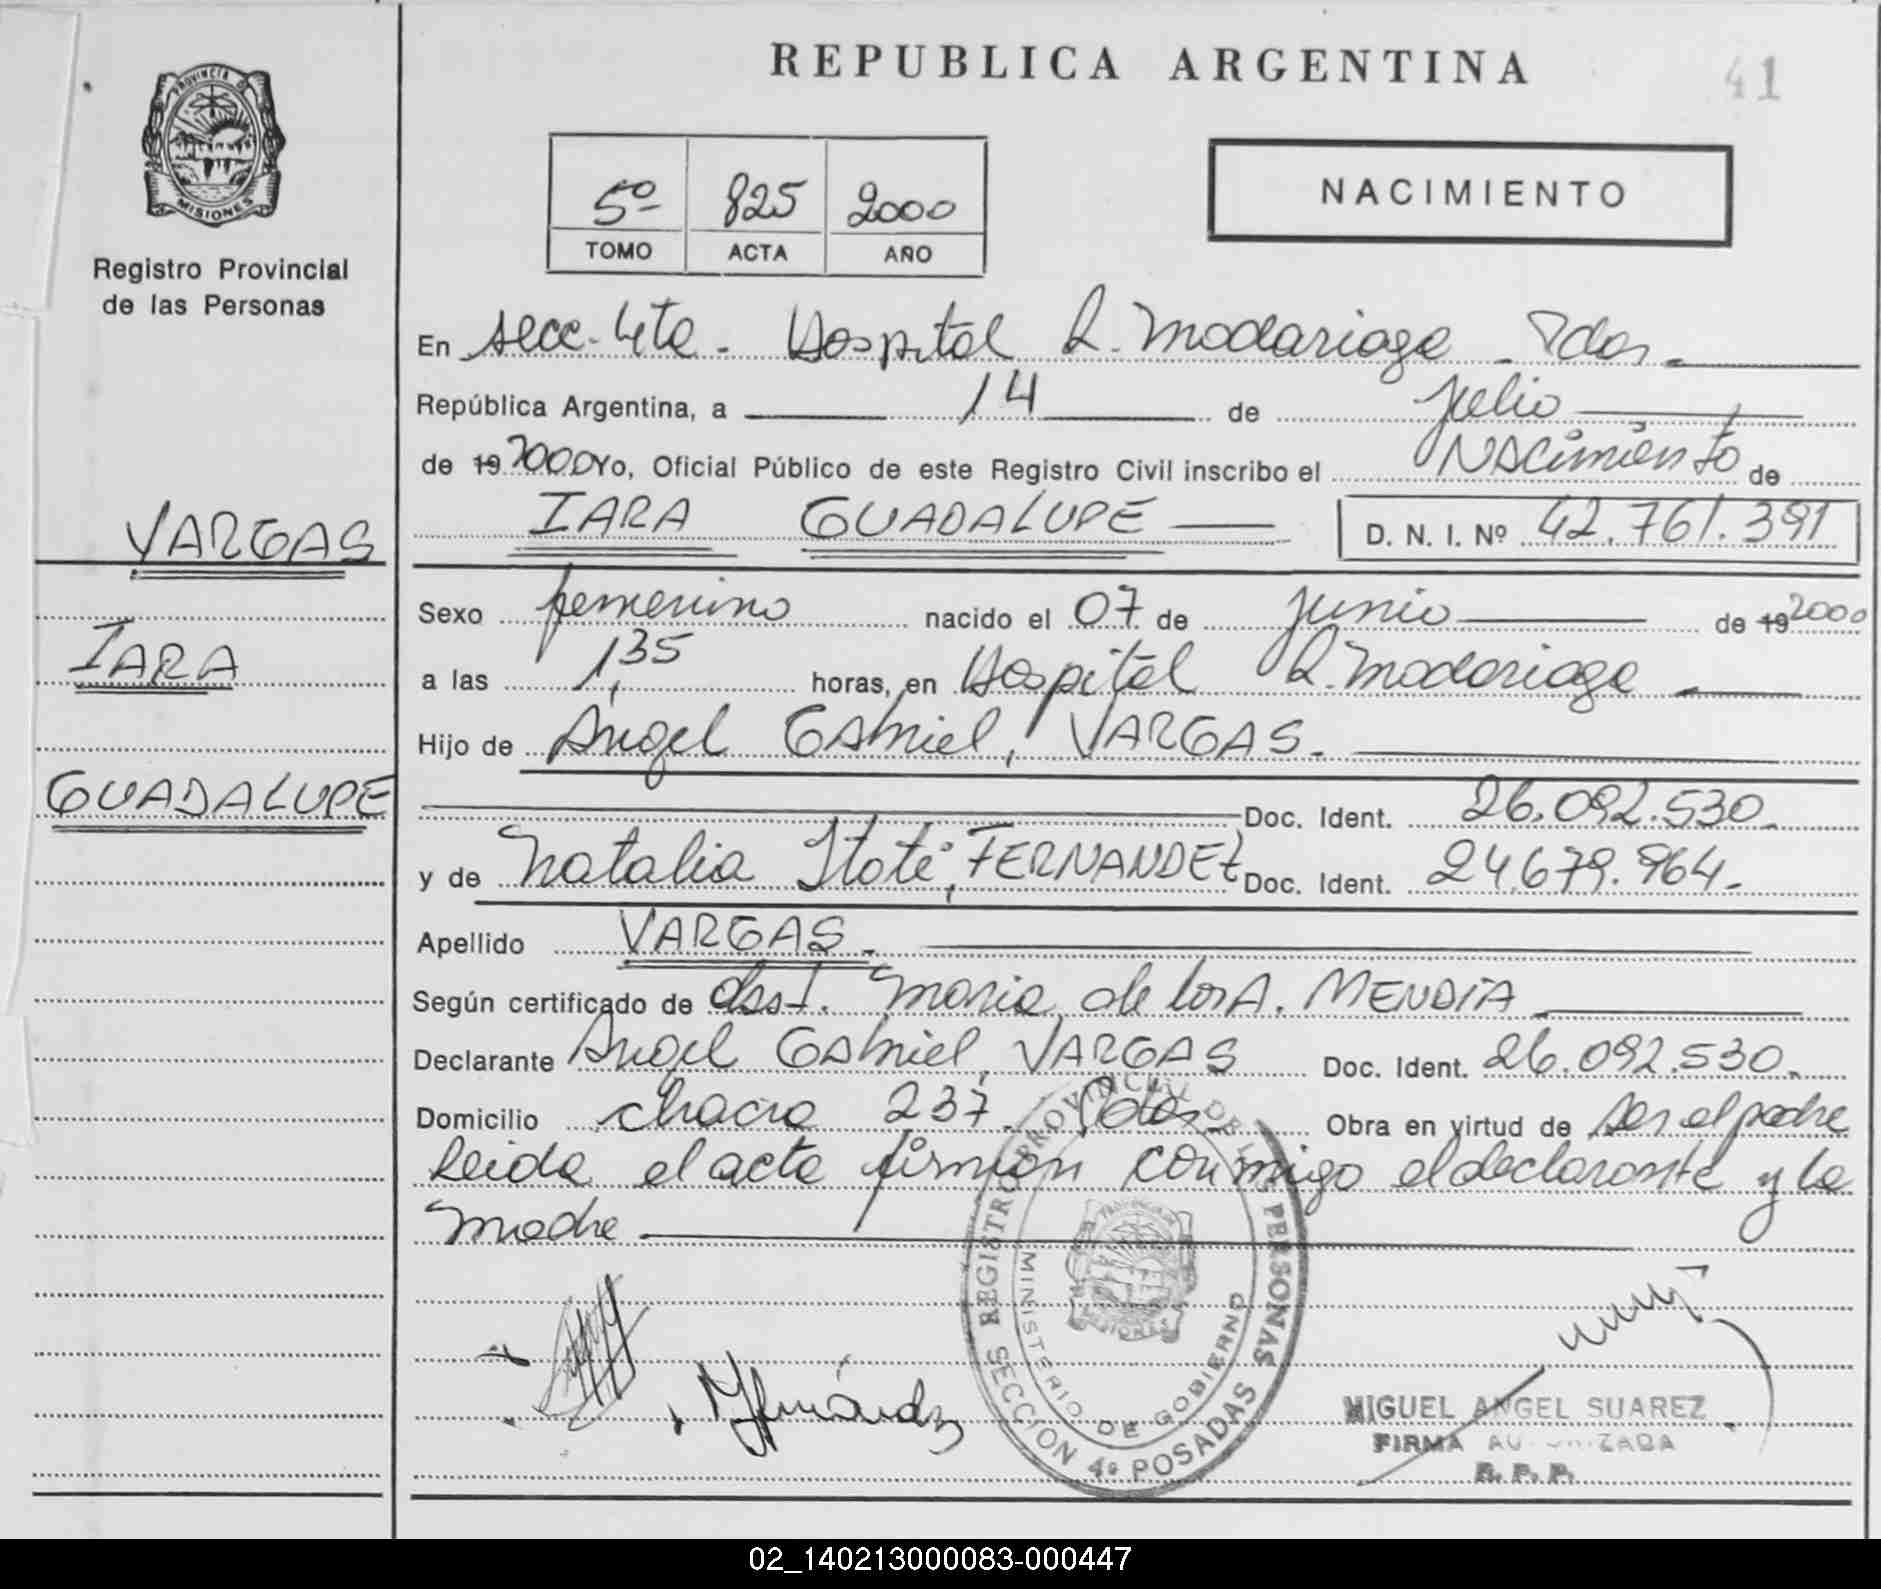 REPUBLICA ARGENTINA
41
PROVINCIA DE
MISIONES
Registro Provincial
de las Personas
5º 825 2000
TOMO ACTA AÑO
NACIMIENTO
En secc. 4ta. Hospital R. Madariaga. Pdas.
República Argentina, a 14 de julio
de 19 2000 Yo, Oficial Público de este Registro Civil inscribo el Nacimiento de
IARA GUADALUPE D. N. I. Nº 42.761.391
VARGAS
IARA
GUADALUPE
Sexo femenino nacido el 07 de junio de 19 2000
a las 1,35 horas, en Hospital R. Madariaga
Hijo de Angel Gabriel, VARGAS.
Doc. Ident. 26.092.530.
y de Natalia Itatí, FERNANDEZ Doc. Ident. 24.679.964.
Apellido VARGAS.
Según certificado de obst. Maria de los A. MENDIA
Declarante Angel Gabriel, VARGAS Doc. Ident. 26.092.530.
Domicilio chacra 237. Pdas Obra en virtud de ser el padre
Leida el acta firman conmigo el declarante y la
madre
REGISTRO PROVINCIAL DE LAS PERSONAS
MINISTERIO DE GOBIERNO
SECCION 4º POSADAS
MIGUEL ANGEL SUAREZ
FIRMA AUTORIZADA
R. P. P.
02_140213000083-000447